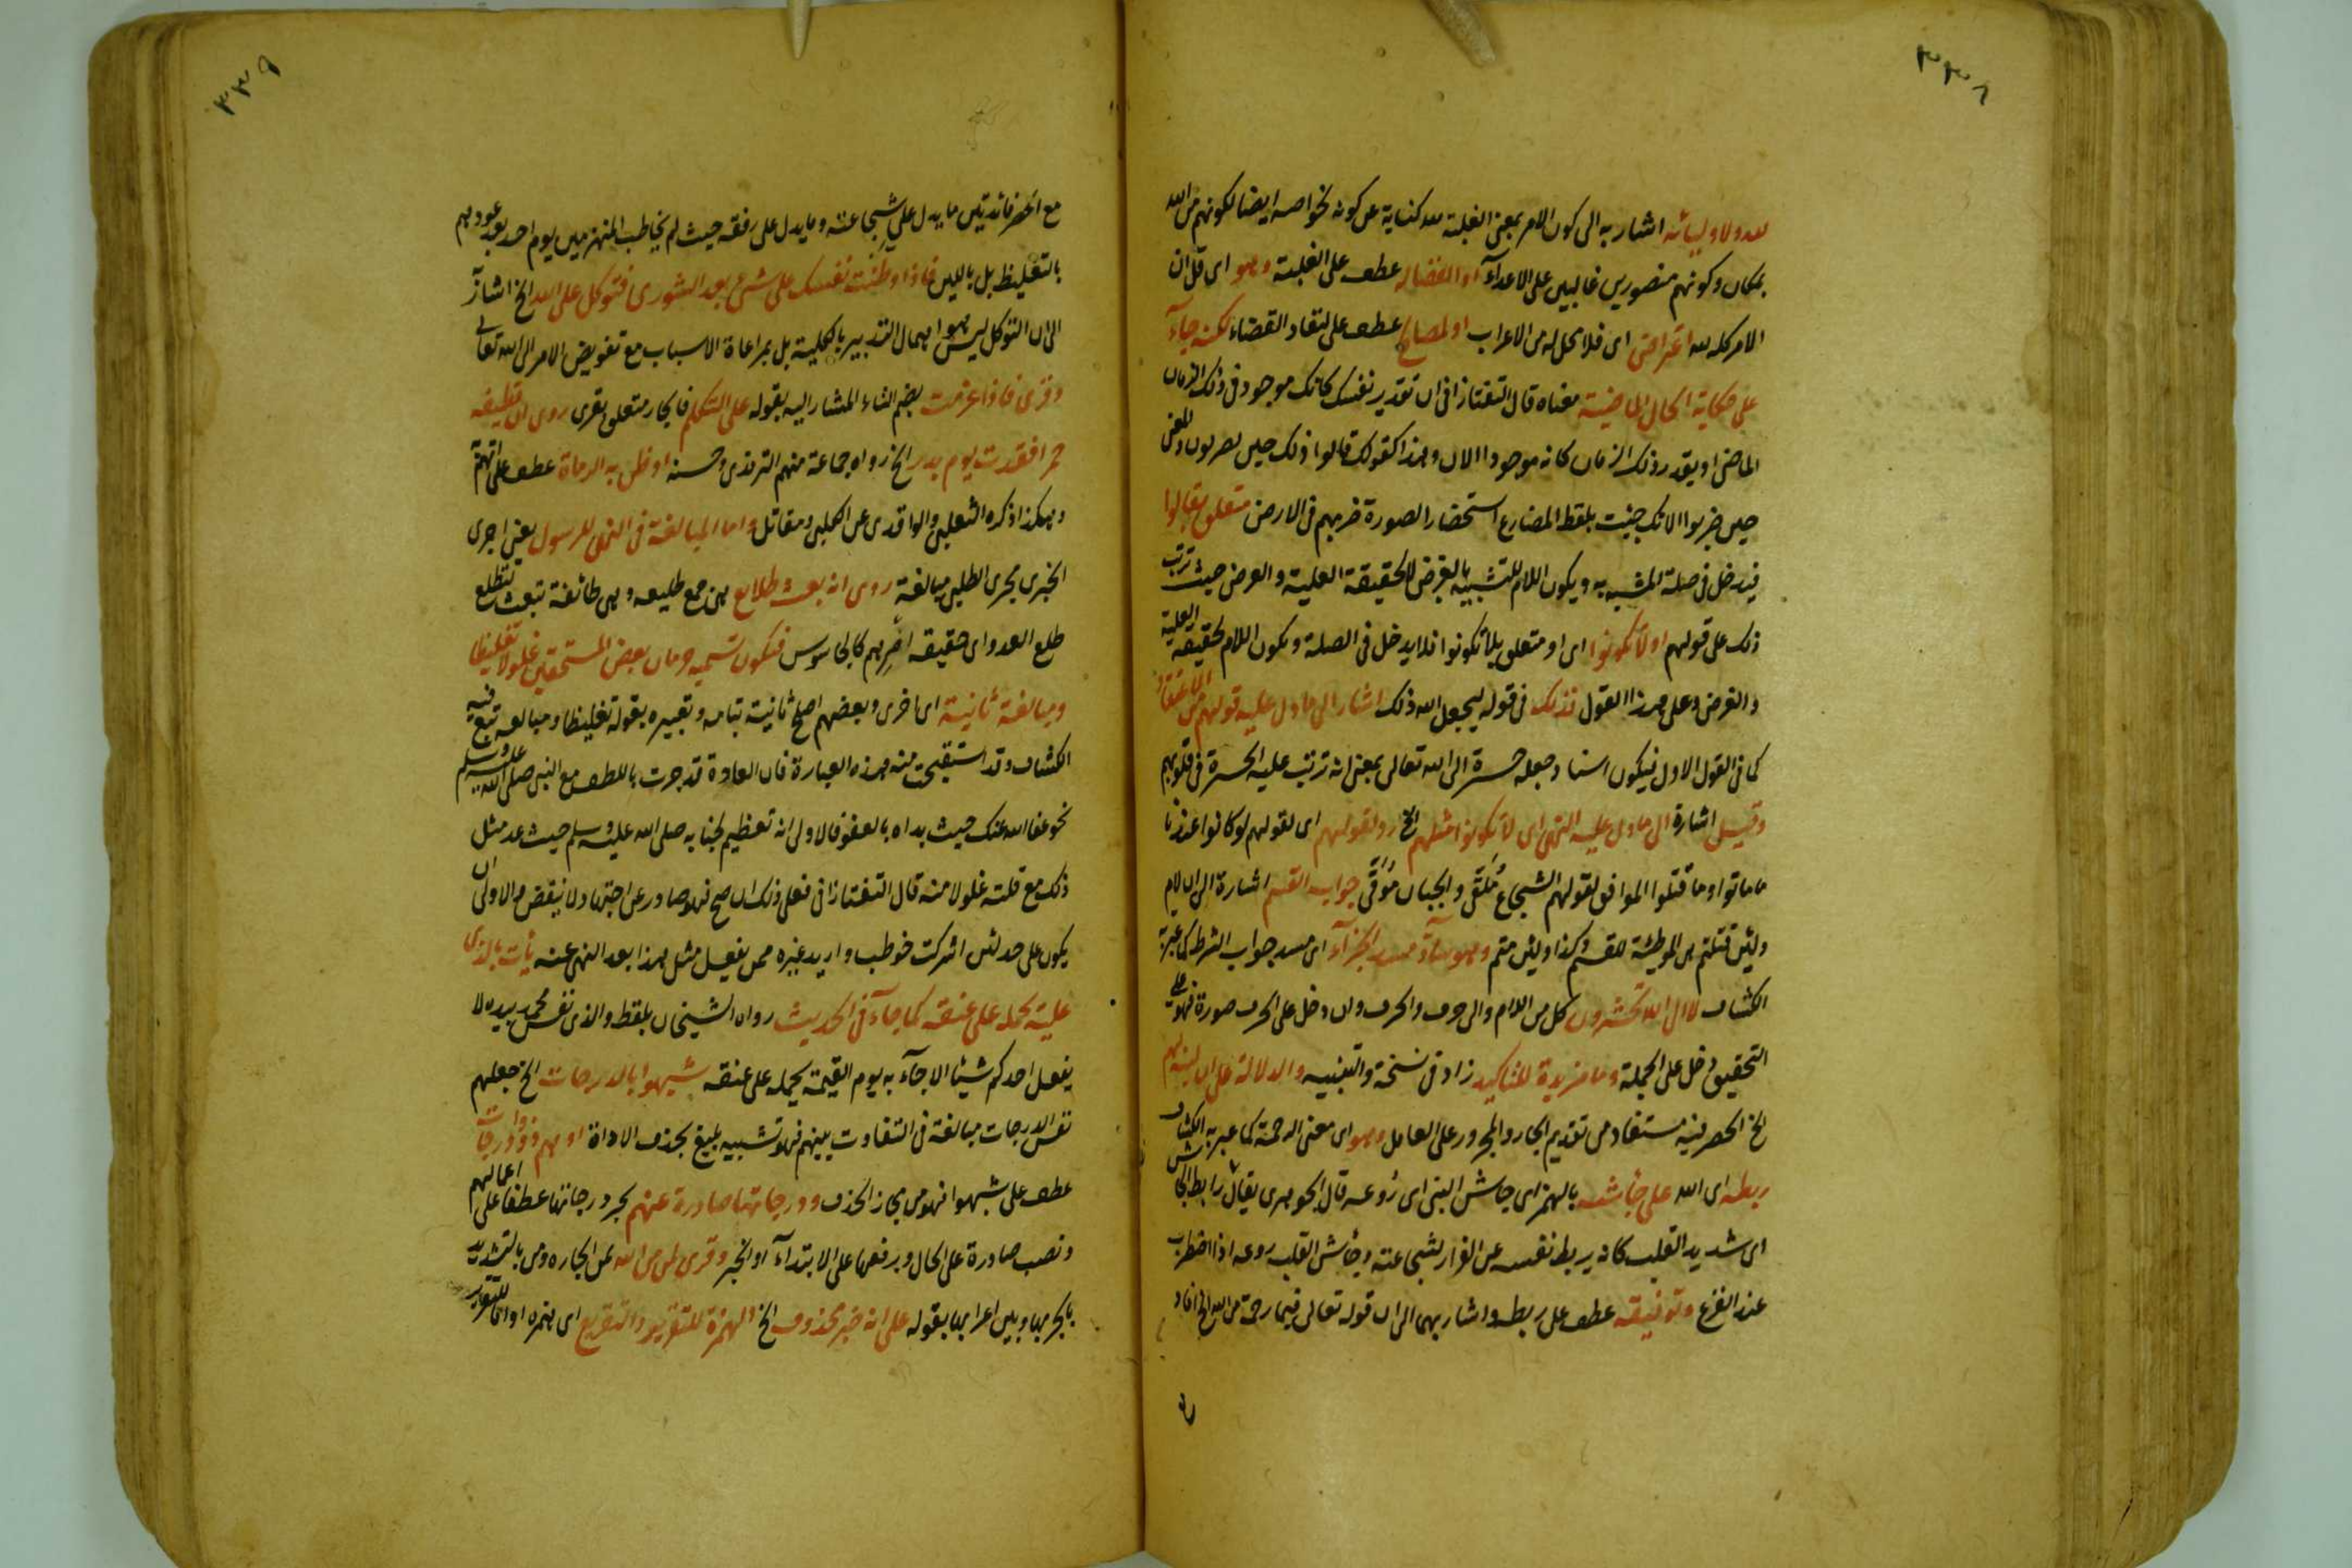 ٣٣٨
لله ولاوليائه اشار به الى كون الامر بمعنى الغلبة لله كناية عن كونه لخواصه ايضا لكونهم من الله
بمكان وكونهم منصورين غالبين على الاعدآء او القضا له عطف على الغلبة وهو اى قل ان
الامر كله لله اعتراض اى فلا محل له من الاعراب او لمصالح عطف على لنفاد القضاء لكنه جآء
على حكاية الحال الماضية معناه قال التفتازانى ان تقدير نفسك كانك موجود فى ذلك الزمان
الماضى او يقدر ذلك الزمان كانه موجود الان وهذا كقولك قالوا ذلك حين يضربون والمعنى
حين ضربوا الا انك جئت بلفظ المضارع استحضارا لصورة ضربهم فى الارض متعلق بقالوا
فيدخل فى صلة المشبه به ويكون اللام للتشبيه بالغرض لا لحقيقة العلية والغرض حيث ترتب
ذلك على قولهم او لا تكونوا اى او متعلق بلا تكونوا فلا يدخل فى الصلة ويكون اللام لحقيقة العلية
والغرض وعلى هذا القول فذلك فى قوله ليجعل الله ذلك اشار الى ما دل عليه قولهم من الاعتقاد
كما فى القول الاول فيكون اسناد جعله حسرة الى الله تعالى بمعنى انه ترتب عليه الحسرة فى قلوبهم
وقيل اشارة الى ما دل عليه النهى اى لا تكونوا مثلهم الخ رد لقولهم اى لقولهم لو كانوا عندنا
ما ماتوا وما قتلوا الموافق لقولهم الشجاع مُلَقّى والجبان مُوَقّى جواب القسم اشارة الى ان لام
ولئن قتلتم هى الموطئة للقسم وكذا ولئن متم وهو سآد مسد الجزآء اى مسد جواب الشرط كما عبر به
الكشاف لالى الله تحشرون كل من اللام والى حرف والحرف وان دخل على الحرف صورة فهو على
التحقيق دخل على الجملة وما مزيدة للتاكيد زاد فى نسخة والتنبيه والدلالة على ان لينه لهم
الخ الحصر فيه مستفاد من تقديم الجار والمجرور على العامل وهو اى معنى الرحمة كما عبر به الكشاف
ربطه اى الله على جأشه بالهمز اى جاش النبى اى رُوعه قال الجوهرى يقال رابط الجاش
اى شديد القلب كانه يربط نفسه عن الفرار لشجاعته وجأش القلب روعه اذا اضطرب
عند الفزع وتوفيقه عطف على ربطه واشار بهما الى ان قوله تعالى فبما رحمة من الله الخ افاد
٣٣٩
مع الحصر فائدتين ما يدل على شجاعته وما يدل على رفقه حيث لم يخاطب المنهزمين يوم احد بعد عودهم
بالتغليظ بل باللين فاذا وطّنت نفسك على شئ بعد الشورى فتوكل على الله الخ اشار
الى ان التوكل ليس هو اهمال التدبير بالكلية بل بمراعاة الاسباب مع تفويض الامر الى الله تعالى
وقرئ فاذا عزمت بضم التاء المشار اليه بقوله على التكلم فالجار متعلق بقرئ روى ان قطيفة
حمرا فقدت يوم بدر الخ رواه جماعة منهم الترمذى وحسنه او ظن به الرماة عطف على اتهم
وهكذا ذكره الثعلبى والواقدى عن الكلبى ومقاتل اما المبالغة فى النهى للرسول يعنى اجرى
الخبرى مجرى الطلبى مبالغة روى انه بعث طلايع هى جمع طليعه وهى طائفة تبعث لتطلع
طلع العدو اى حقيقة امرهم كالجاسوس فيكون تسمية حرمان بعض المستحقين غلولا تغليظا
ومبالغة ثانية اى اخرى وبعضهم اصلح ثانية بتامه وتعبيره بقوله تغليظا ومبالغه تبع فيه
الكشاف وقد استقبحت منه هذه العبارة فان العادة قد جرت باللطف مع النبى صلى الله عليه وسلم
نحو عفا الله عنك حيث بداه بالعفو فالاولى انه تعظيم لجنابه صلى الله عليه وسلم حيث عد مثل
ذلك مع قلته غلولا منه قال التفتازانى فعلى ذلك ان صح فهو صادر عن اجتهاد ولا نقض والاولى ان
يكون على حد لئن اشركت خوطب واريد غيره ممن يفعل مثل هذا بعد النهى عنه يأت بالذى
غلّه يحمله على عنقه كما جآء فى الحديث رواه الشيخان بلفظ والذى نفس محمد بيده لا
يفعل احدكم شيئا الا جآء به يوم القيمة يحمله على عنقه شبهوا بالدرجات الخ جعلهم
نفس الدرجات مبالغة فى التفاوت بينهم فهو تشبيه بليغ بحذف الاداة او هم ذووا درجات
عطف على شبهوا فهو من مجاز الحذف ودرجاتها صادرة عنهم بجر درجاتها عطفا على اعمالهم
ونصب صادرة على الحال وبرفعها على الابتدآء او الخبر وقرئ لمن من الله لمن الجاره ومن بالتشديد
بالجر بها وبين اعرابها بقوله على انه خبر محذوف الخ الهمزة للتقرير والتقريع اى همزه او لما للتقرير